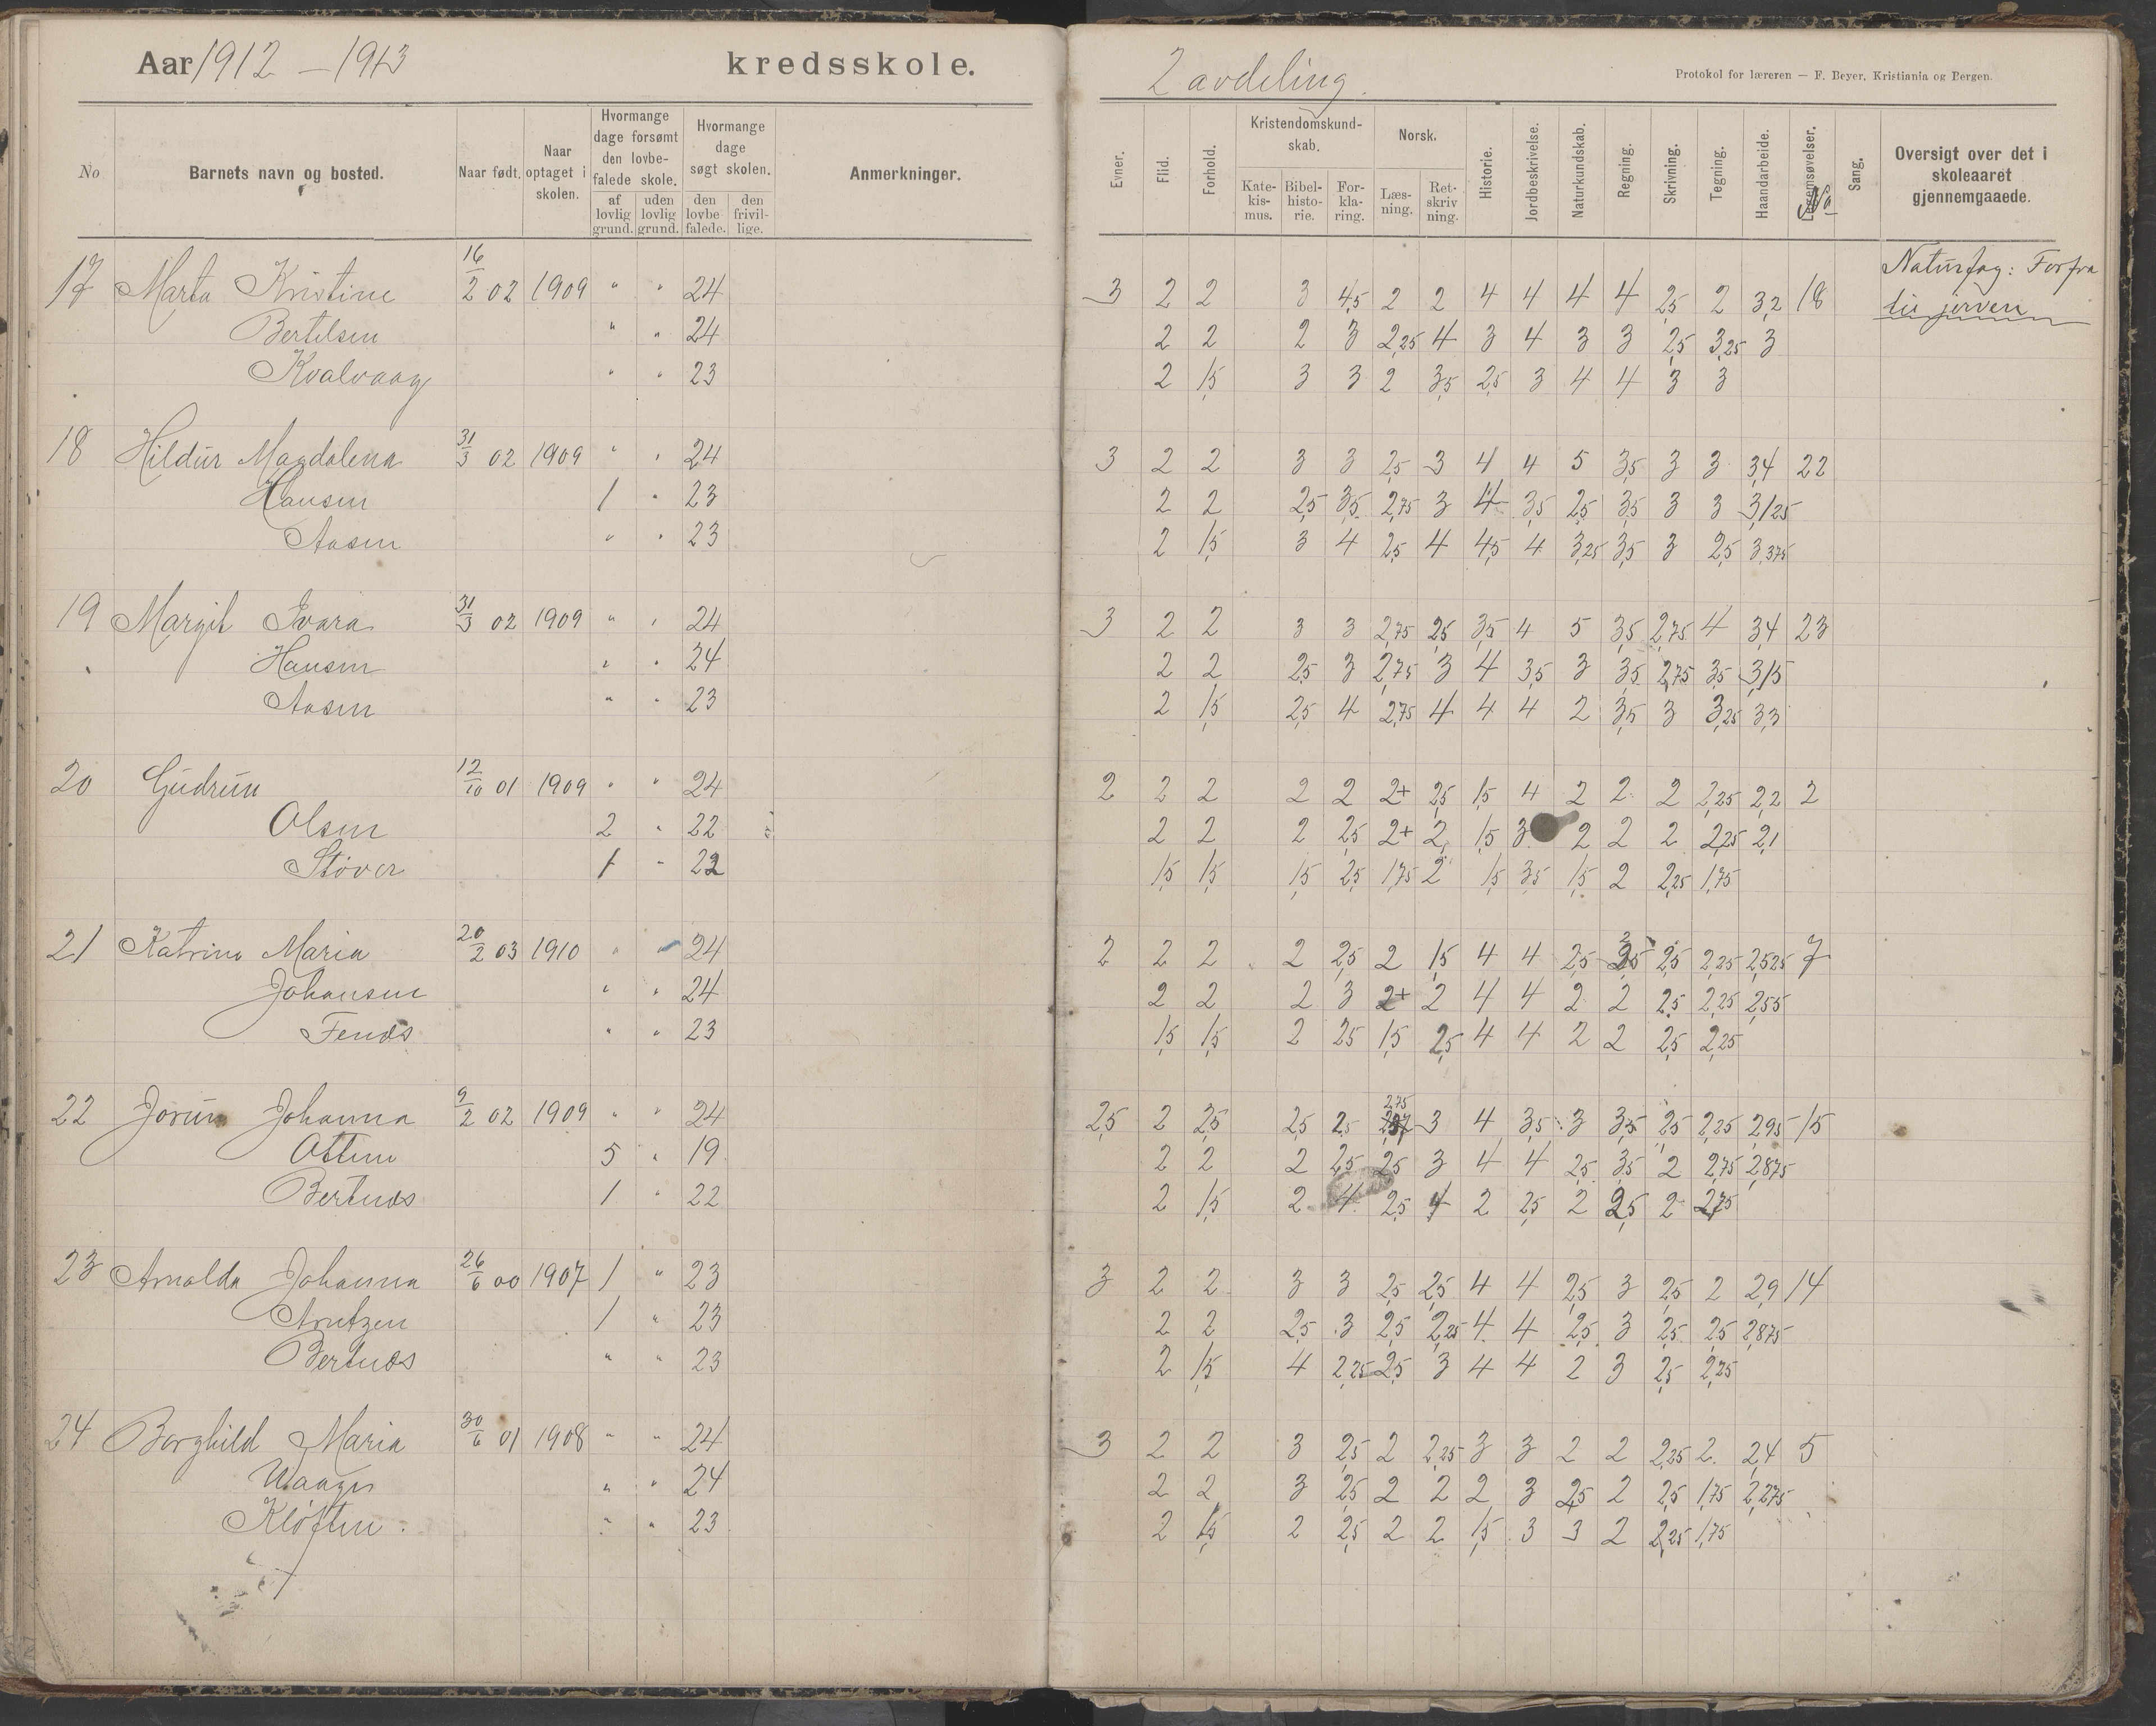 Aar 1912 – 1913 kredsskole.
2 avdeling.
Protokol for læreren — F. Beyer, Kristiania og Bergen.
No
Barnets navn og bosted.
Naar født.
Naar optaget i skolen.
Hvormange dage forsømt den lovbefalede skole.
af lovlig grund.
uden lovlig grund.
Hvormange dage søgt skolen.
den lovbefalede.
den frivillige.
Anmerkninger.
Evner.
Flid.
Forhold.
Kristendomskundskab.
Katekismus.
Bibelhistorie.
Forklaring.
Norsk.
Læsning.
Retskrivning.
Historie.
Jordbeskrivelse.
Naturkundskab.
Regning.
Skrivning.
Tegning.
Haandarbeide.
Legemsøvelser.
No
Sang.
Oversigt over det i skoleaaret gjennemgaaede.
Naturfag: Forfra
til jerven
17 Marta Kristine 16/2 02 1909 " " 24 3 2 2 3 4,5 2 2 4 4 4 4 2,5 2 3,2 18
Bertelsen " " 24 2 2 2 3 2,25 4 3 4 3 3 2,5 3,25 3
Kvalvaag " " 23 2 1,5 3 3 2 3,5 2,5 3 4 4 3 3
18 Hildur Magdalena 31/3 02 1909 " " 24 3 2 2 3 3 2,5 3 4 4 5 3,5 3 3 3,4 22
Hansen 1 " 23 2 2 2,5 3,5 2,75 3 4 3,5 2,5 3,5 3 3 3,125
Aasen " " 23 2 1,5 3 4 2,5 4 4,5 4 3,25 3,5 3 2,5 3,375
19 Margit Ivara 31/3 02 1909 " " 24 3 2 2 3 3 2,75 2,5 3,5 4 5 3,5 2,75 4 3,4 23
Hansen " " 24 2 2 2,5 3 2,75 3 4 3,5 3 3,5 2,75 3,5 3,15
Aasen " " 23 2 1,5 2,5 4 2,75 4 4 4 2 3,5 3 3,25 3,3
20 Gudrun 12/10 01 1909 " " 24 2 2 2 2 2 2+ 2,5 1,5 4 2 2 2 2,25 2,2 2
Olsen 2 " 22 2 2 2 2,5 2+ 2 1,5 3 2 2 2 2,25 2,1
Støver 1 " 22 1,5 1,5 1,5 2,5 1,75 2 1,5 3,5 1,5 2 2,25 1,75
21 Katrine Maria 20/2 03 1910 " " 24 2 2 2 2 2,5 2 1,5 4 4 2,5 2,5 2,25 2,525 7
Johansen " " 24 2 2 2 3 2+ 2 4 4 2 2 2,5 2,25 2,55
Fenes " " 23 1,5 1,5 2 2,5 1,5 2,5 4 4 2 2 2,5 2,25
22 Jorun Johanna 9/2 02 1909 " " 24 2,5 2 2,5 2,5 2,5 2,75 3 4 3,5 3 3,5 2,5 2,25 2,95 15
Ottem 5 " 19 2 2 2 2,5 2,5 3 4 4 2,5 3,5 2 2,75 2,875
Bertnes 1 " 22 2 1,5 2 4 2,5 4 2 2,5 2 2,5 2 2,75
23 Arnolda Johanna 26/6 00 1907 1 " 23 3 2 2 3 3 2,5 2,5 4 4 2,5 3 2,5 2 2,9 14
Arntzen 1 " 23 2 2 2,5 3 2,5 2,25 4 4 2,5 3 2,5 2,5 2,875
Bertnes " " 23 2 1,5 4 2,25 2,5 3 4 4 2 3 2,5 2,25
24 Borghild Maria 30/6 01 1908 " " 24 3 2 2 3 2,5 2 2,25 3 3 2 2 2,25 2 2,4 5
Waagen " " 24 2 2 3 2,5 2 2 2 3 2,5 2 2,5 1,75 2,275
Kløften " " 23 2 1,5 2 2,5 2 2 1,5 3 3 2 2,25 1,75